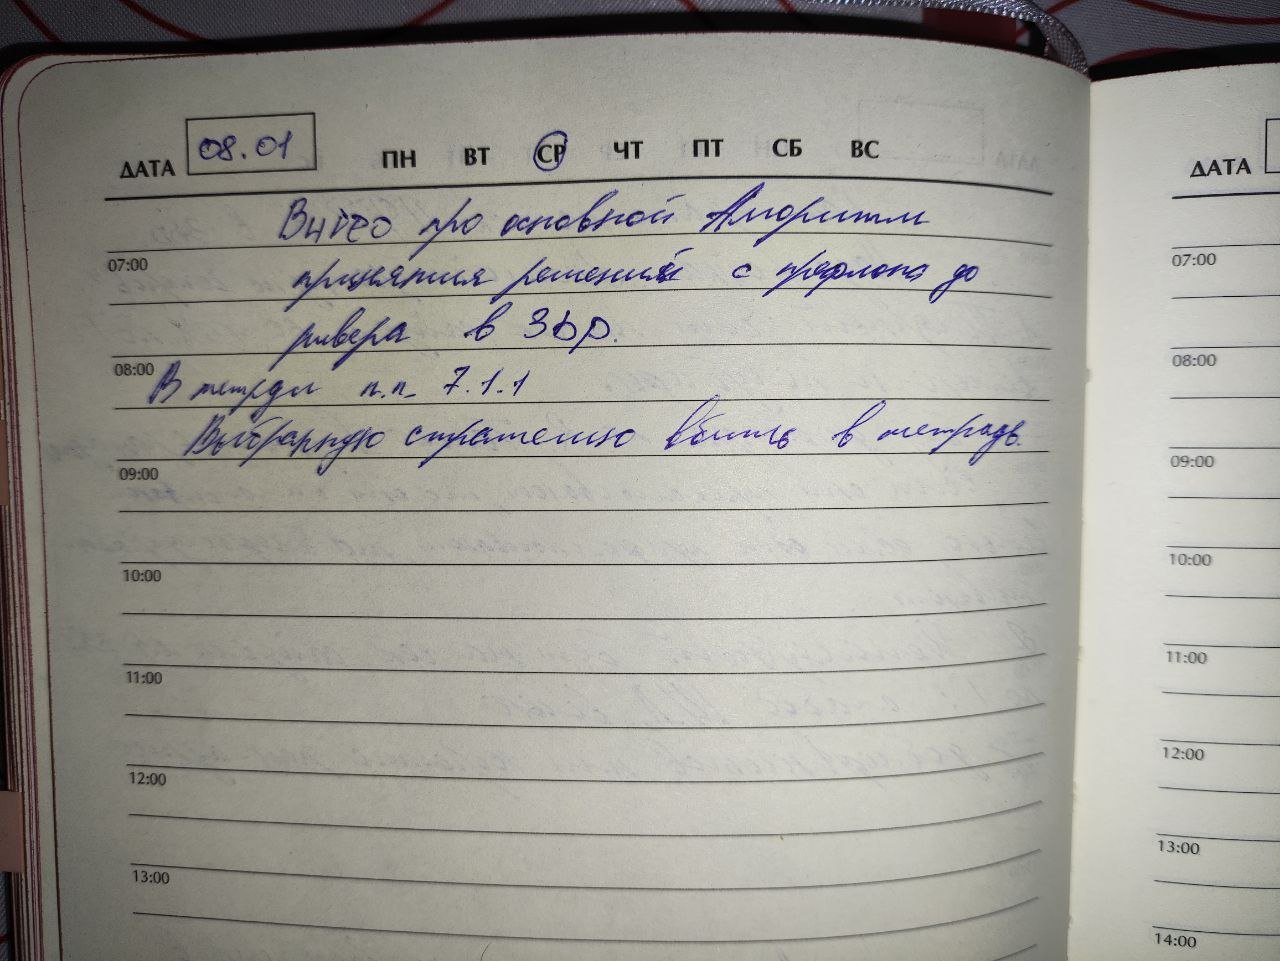 ДАТА 08.01 ПН ВТ СР ЧТ ПТ СБ ВС
Видео про основной Алгоритм
07:00
принятия решений с префлопа до
ривера в 3bp.
08:00
В тетради п.п. 7.1.1
Выбранную стратегию вбить в тетрадь.
09:00
10:00
11:00
12:00
13:00
ДАТА
07:00
08:00
09:00
10:00
11:00
12:00
13:00
14:00